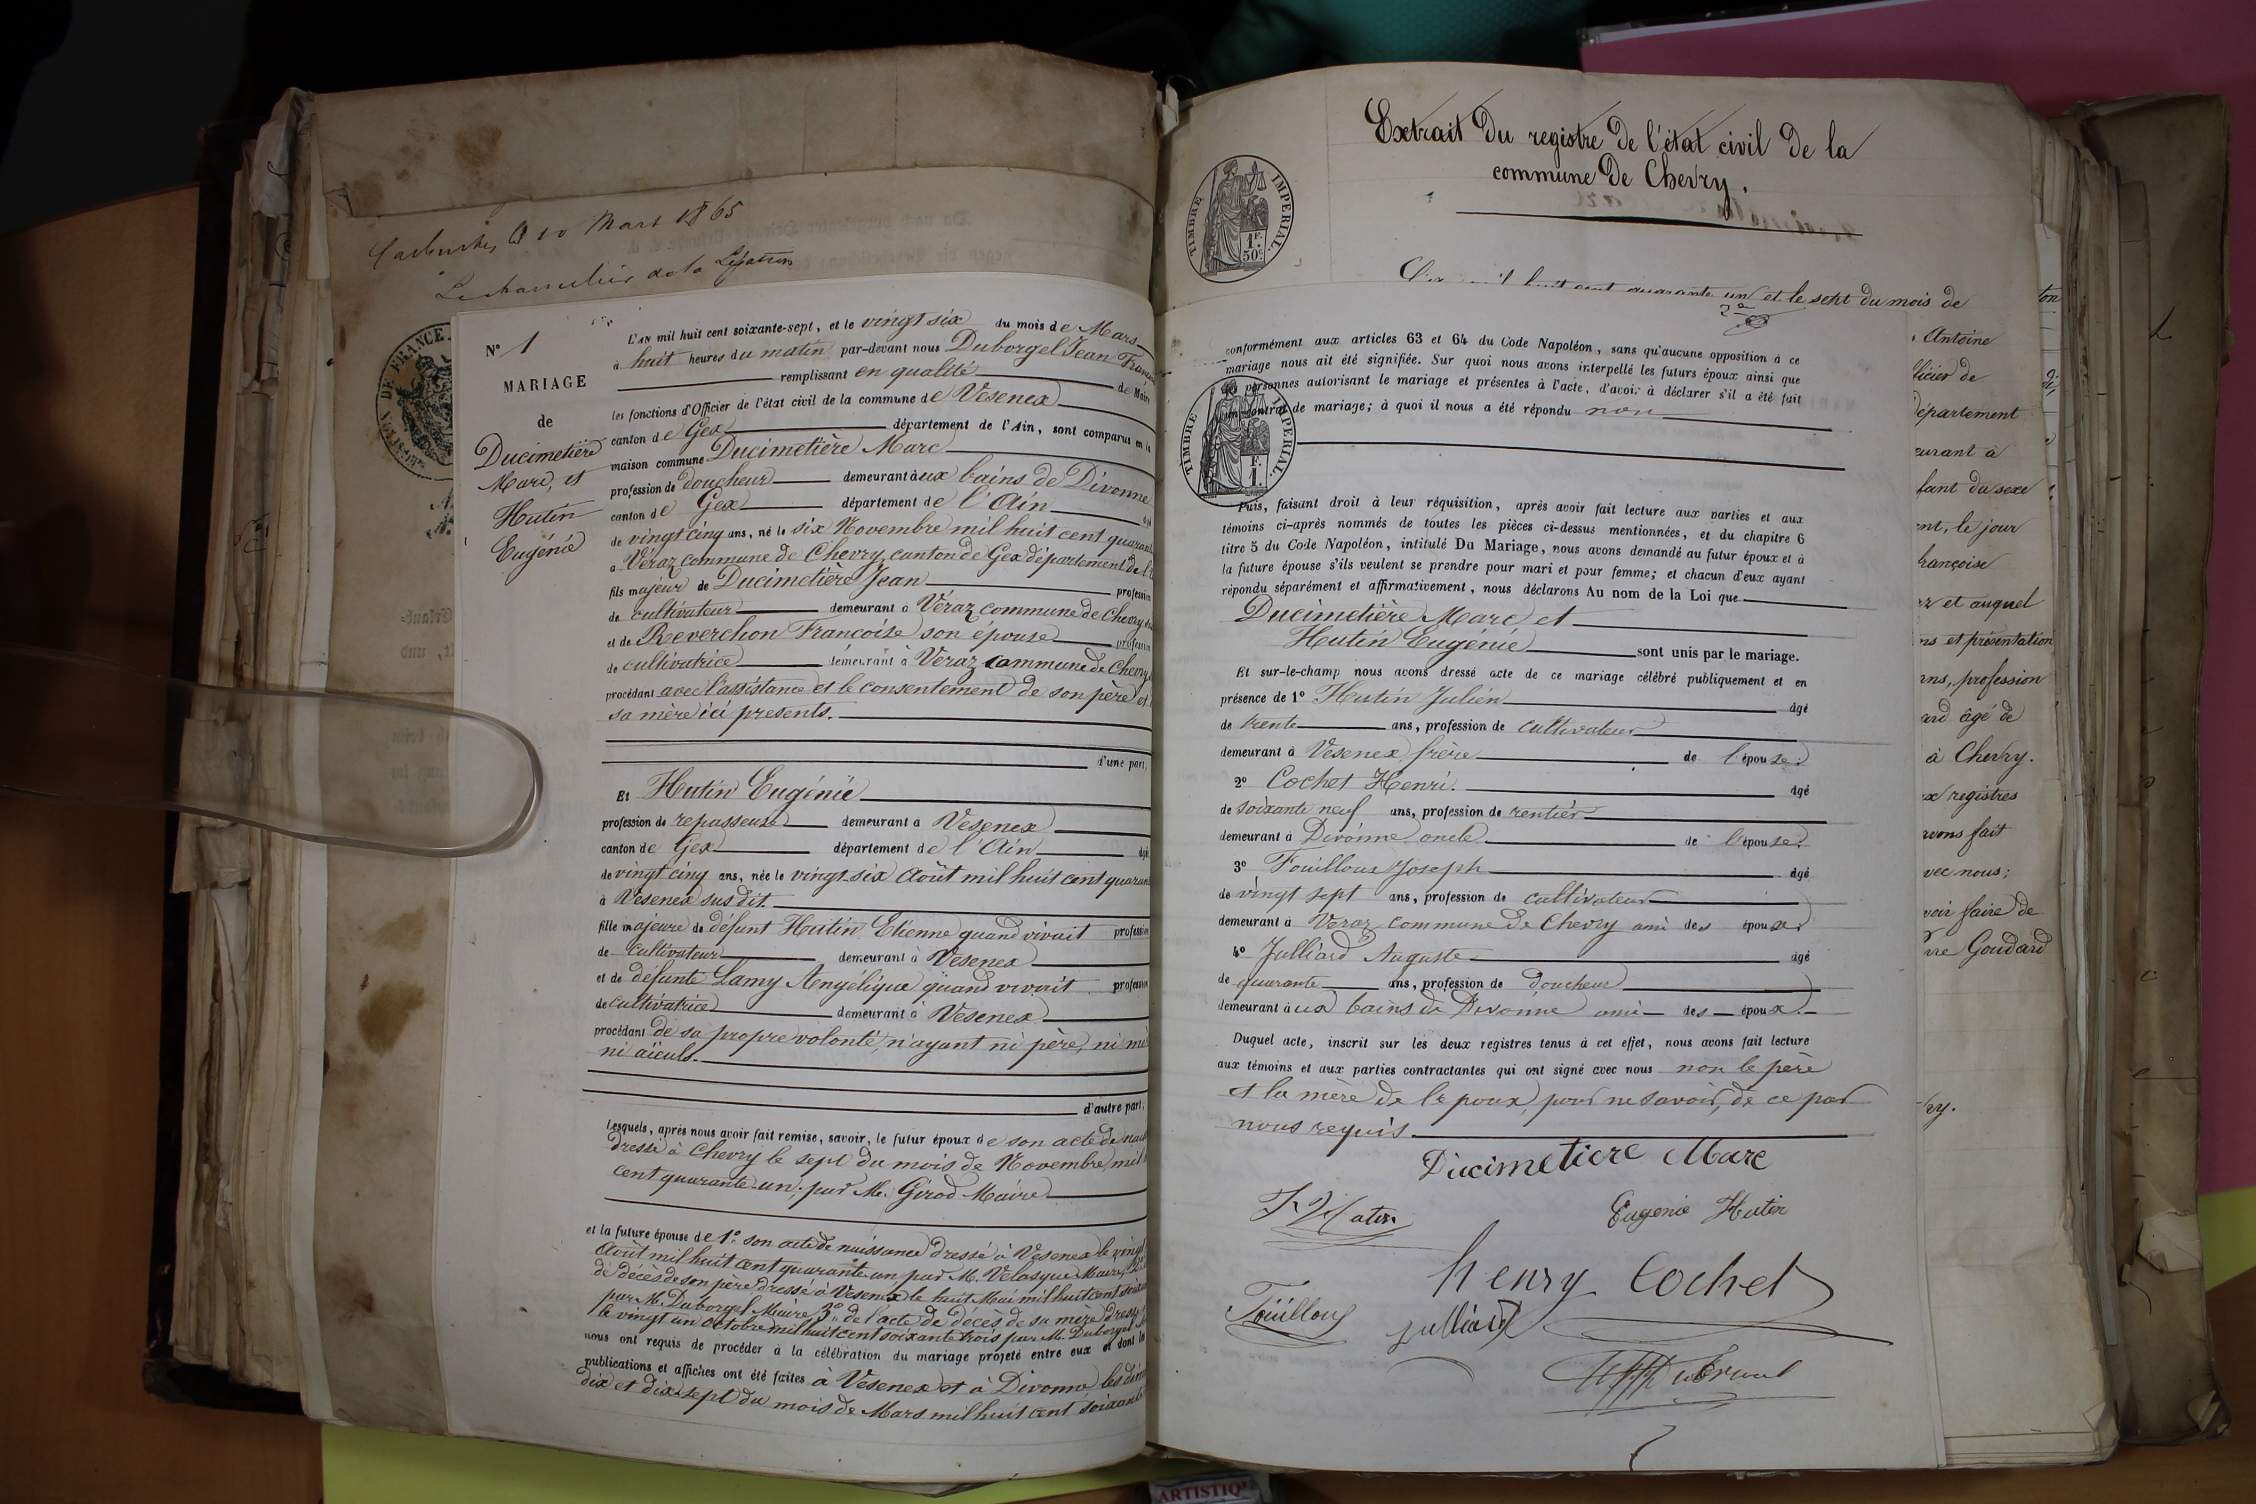 10 Mars 1865
de la Légation
DE FRANCE
Nº 1
MARIAGE
de
Ducimetière
Marc, et
Hutin
Eugénie
L'AN mil huit cent soixante-sept, et le vingt six du mois de Mars
à huit heures du matin par-devant nous Duborgel Jean
remplissant en qualité de Maire
les fonctions d'Officier de l'état civil de la commune de Vesenex
canton de Gex département de l'Ain, sont comparus en la
maison commune Ducimetière Marc
profession de doucheur demeurant aux bains de Divonne
canton de Gex département de l'Ain âgé
de vingt cinq ans, né le six Novembre mil huit cent
à Véraz commune de Chevry canton de Gex département de
fils majeur de Ducimetière Jean profession
de cultivateur demeurant à Véraz commune de Chevry
et de Reverchon Françoise son épouse profession
de cultivatrice demeurant à Véraz commune de Chevry
procédant avec l'assistance et le consentement de son père et
sa mère ici presents.
d'une part,
Et Hutin Eugénie
profession de repasseuse demeurant à Vesenex
canton de Gex département de l'Ain âgé
de vingt cinq ans, née le vingt six Août mil huit cent
à Vesenex susdit.
fille majeure de défunt Hutin Etienne quand vivait profession
de cultivateur demeurant à Vesenex
et de défunte Lamy Angélique quand vivait profession
de cultivatrice demeurant à Vesenex
procédant de sa propre volonté, n'ayant ni père, ni
ni aïeuls.
d'autre part,
Lesquels, après nous avoir fait remise, savoir, le futur époux de son acte de
dressé à Chevry le sept du mois de Novembre mil
cent quarante un, par M. Girod Maire
et la future épouse de 1º son acte de naissance dressé à Vesenex le vingt
Août mil huit cent quarante un par M. Velasque Maire,
de décès de son père dressé à Vesenex le huit Mai mil huit cent
par M. Duborgel Maire 3º de l'acte de décès de sa mère dressé
le vingt un octobre mil huit cent soixante trois par M. Duborgel
nous ont requis de procéder à la célébration du mariage projeté entre eux et dont les
publications et affiches ont été faites à Vesenex et à Divonne les
dix et dix-sept du mois de Mars mil huit cent
Extrait du registre de l'état civil de la
commune de Chevry.
TIMBRE IMPERIAL.
1F.
50c
huit cent quarante un et le sept du mois de
conformément aux articles 63 et 64 du Code Napoléon, sans qu'aucune opposition à ce
mariage nous ait été signifiée. Sur quoi nous avons interpellé les futurs époux ainsi que
personnes autorisant le mariage et présentes à l'acte, d'avoir à déclarer s'il a été fait
un contrat de mariage; à quoi il nous a été répondu non
TIMBRE IMPERIAL.
F.
1.
Puis, faisant droit à leur réquisition, après avoir fait lecture aux parties et aux
témoins ci-après nommés de toutes les pièces ci-dessus mentionnées, et du chapitre 6
titre 5 du Code Napoléon, intitulé Du Mariage, nous avons demandé au futur époux et à
la future épouse s'ils veulent se prendre pour mari et pour femme; et chacun d'eux ayant
répondu séparément et affirmativement, nous déclarons Au nom de la Loi que
Ducimetière Marc et
Hutin Eugénie sont unis par le mariage.
Et sur-le-champ nous avons dressé acte de ce mariage célébré publiquement et en
présence de 1º Hutin Julien âgé
de trente ans, profession de cultivateur
demeurant à Vesenex frère de l'épouse.
2º Cochet Henri. âgé
de soixante neuf ans, profession de rentier
demeurant à Divonne oncle de l'épouse.
3º Fouilloux Joseph âgé
de vingt sept ans, profession de cultivateur
demeurant à Veraz commune de Chevry ami des époux.
4º Julliard Auguste âgé
de quarante ans, profession de doucheur
demeurant aux bains de Divonne ami des époux.
Duquel acte, inscrit sur les deux registres tenus à cet effet, nous avons fait lecture
aux témoins et aux parties contractantes qui ont signé avec nous non le père
et la mère de l'époux, pour ne savoir, de ce par
nous requis
Ducimetiere Marc
Eugenie Hutin
henry Cochet
Fouilloux
julliard
Antoine
officier de
département
demeurant à
enfant du sexe
le jour
Françoise
et auquel
et présentation
ans, profession
âgé de
à Chevry.
registres
avons fait
avec nous;
savoir faire de
Goudard
ARTISTIQ